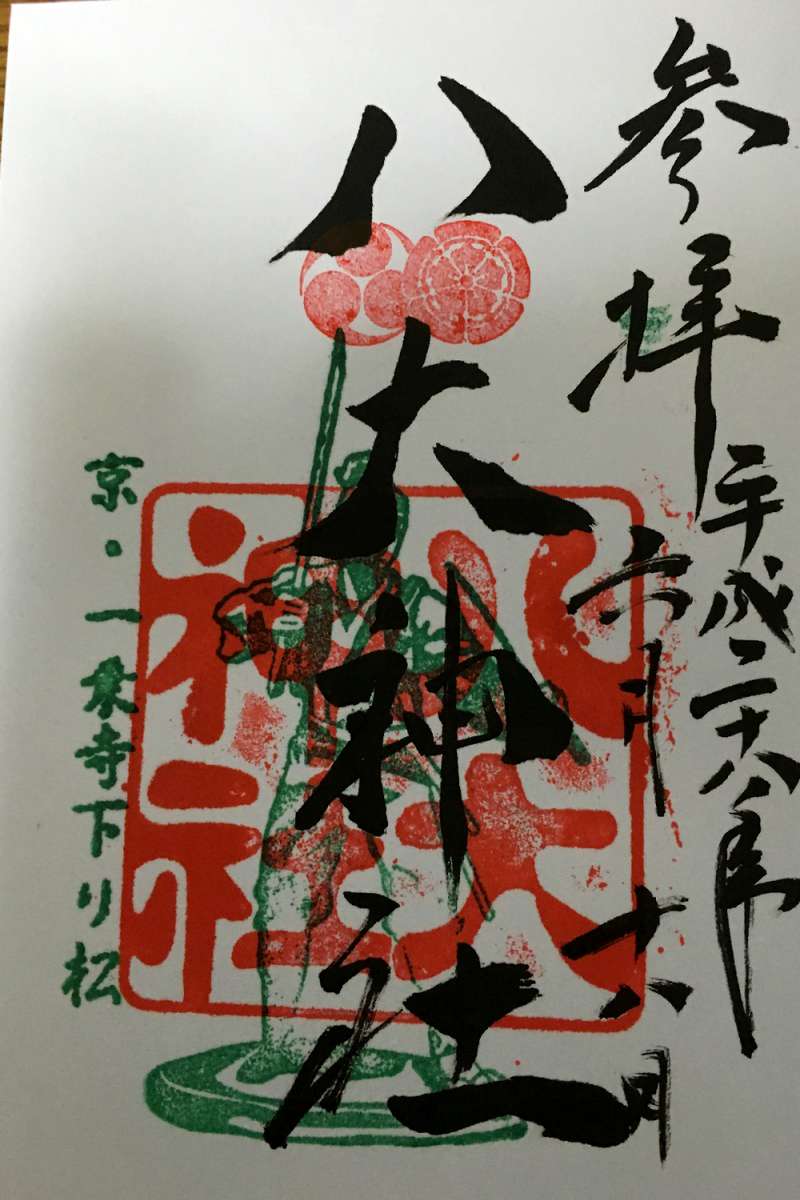 参拝
平成二十八年
六月十六日
八大神社
八大神社
京・一乗寺下り松